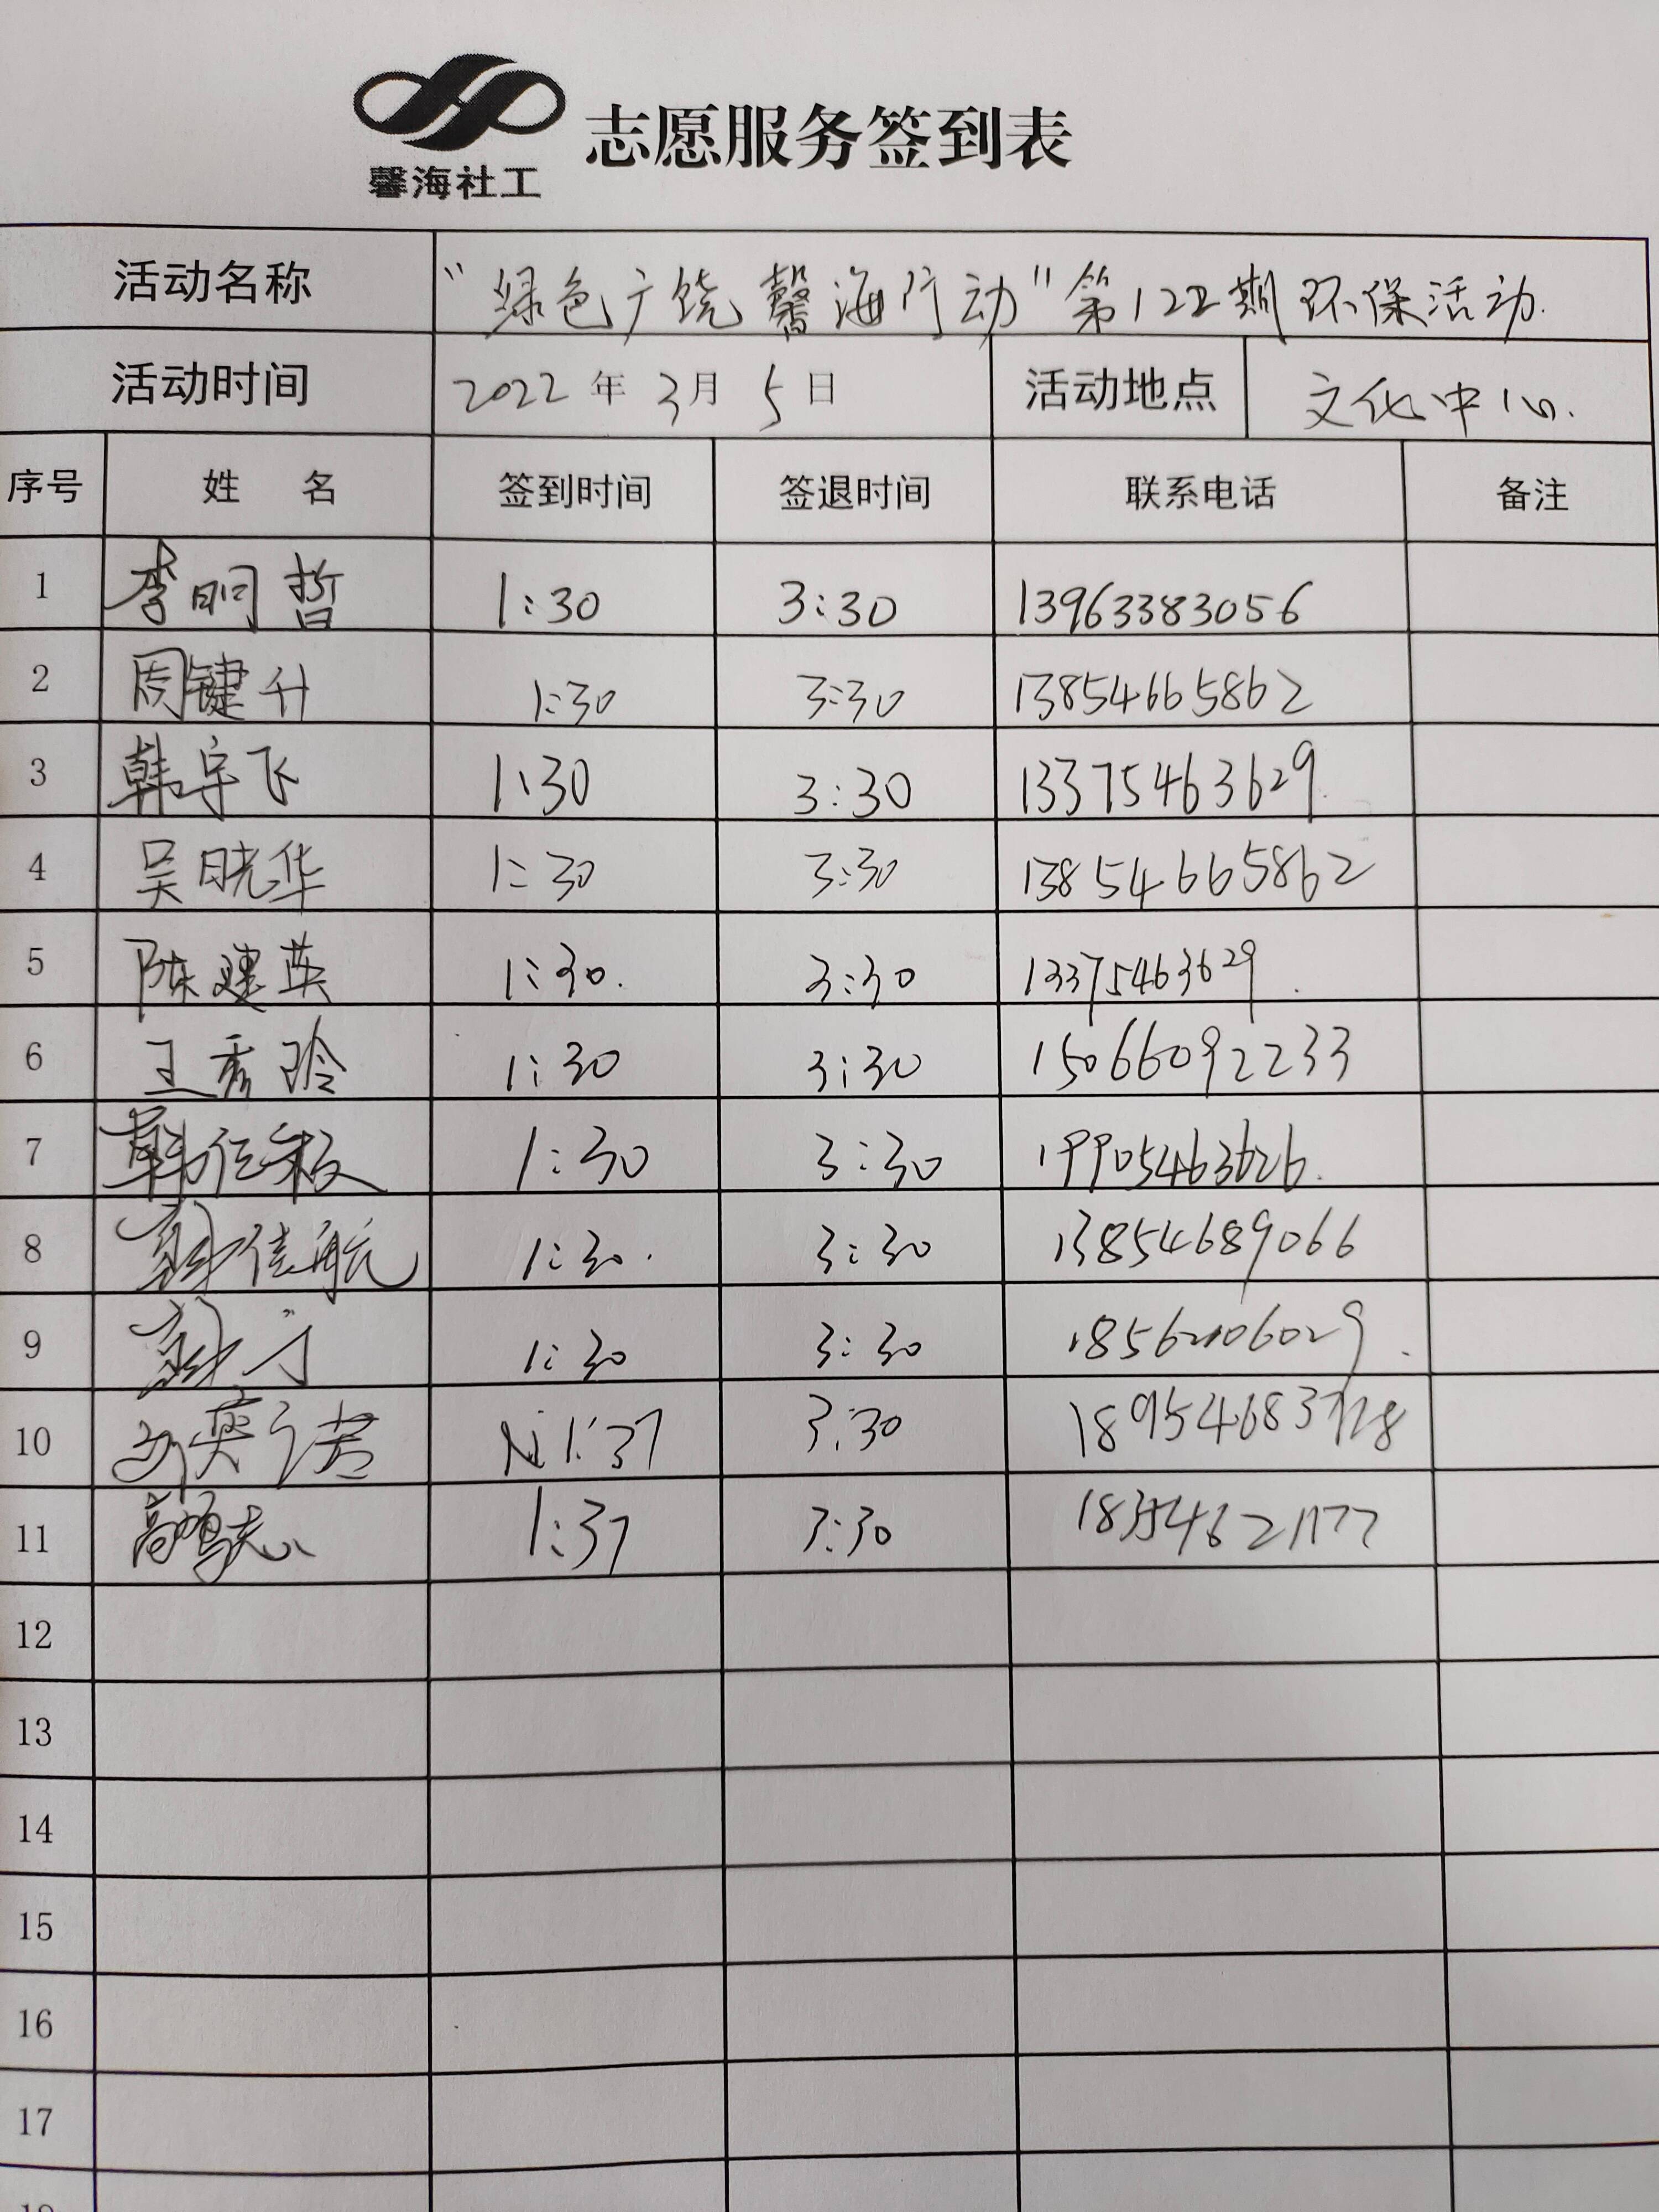 馨海社工
志愿服务签到表
活动名称 "绿色广饶馨海行动"第122期环保活动.
活动时间 2022年3月5日 活动地点 文化中心.
序号 姓名 签到时间 签退时间 联系电话 备注
1 李明哲 1:30 3:30 13963383056
2 周键升 1:30 3:30 13854665862
3 韩宇飞 1:30 3:30 13375463629.
4 吴晓华 1:30 3:30 13854665862
5 陈建英 1:30. 3:30 13375463629.
6 王秀玲 1:30 3:30 15066092233
7 韩 1:30 3:30 19905463626.
8 佳航 1:30. 3:30 13854689066
9 1:30 3:30 18562106029.
10 1:37 3:30
11 高鸣 1:37 3:30
12
13
14
15
16
17